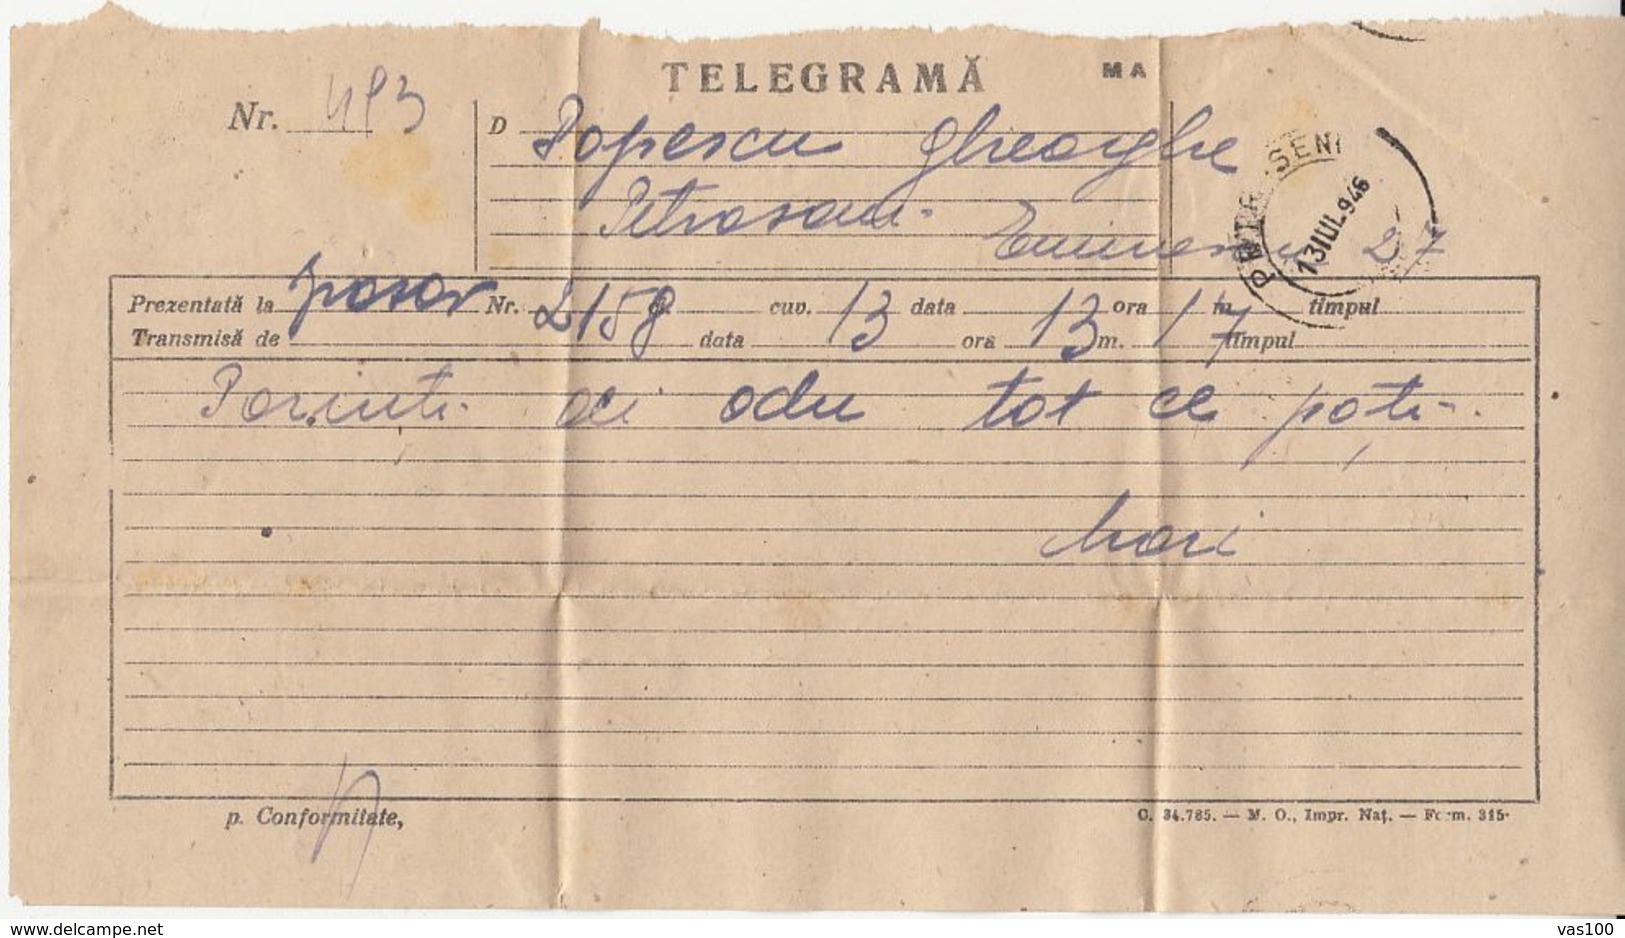 TELEGRAMĂ MA
Nr. 493
D Popescu Gheorghe
Petrosani
Eminescu 27
PETROSENI
13 IUL. 946
Prezentată la Nr. 2158 cuv. 13 data 13 ora 17 m timpul
Transmisă de data ora m. timpul
Porniti aci adu tot ce poți
p. Conformitate,
C. 34.785. — M. O., Impr. Naț. — Form. 315
www.delcampe.net
vas100